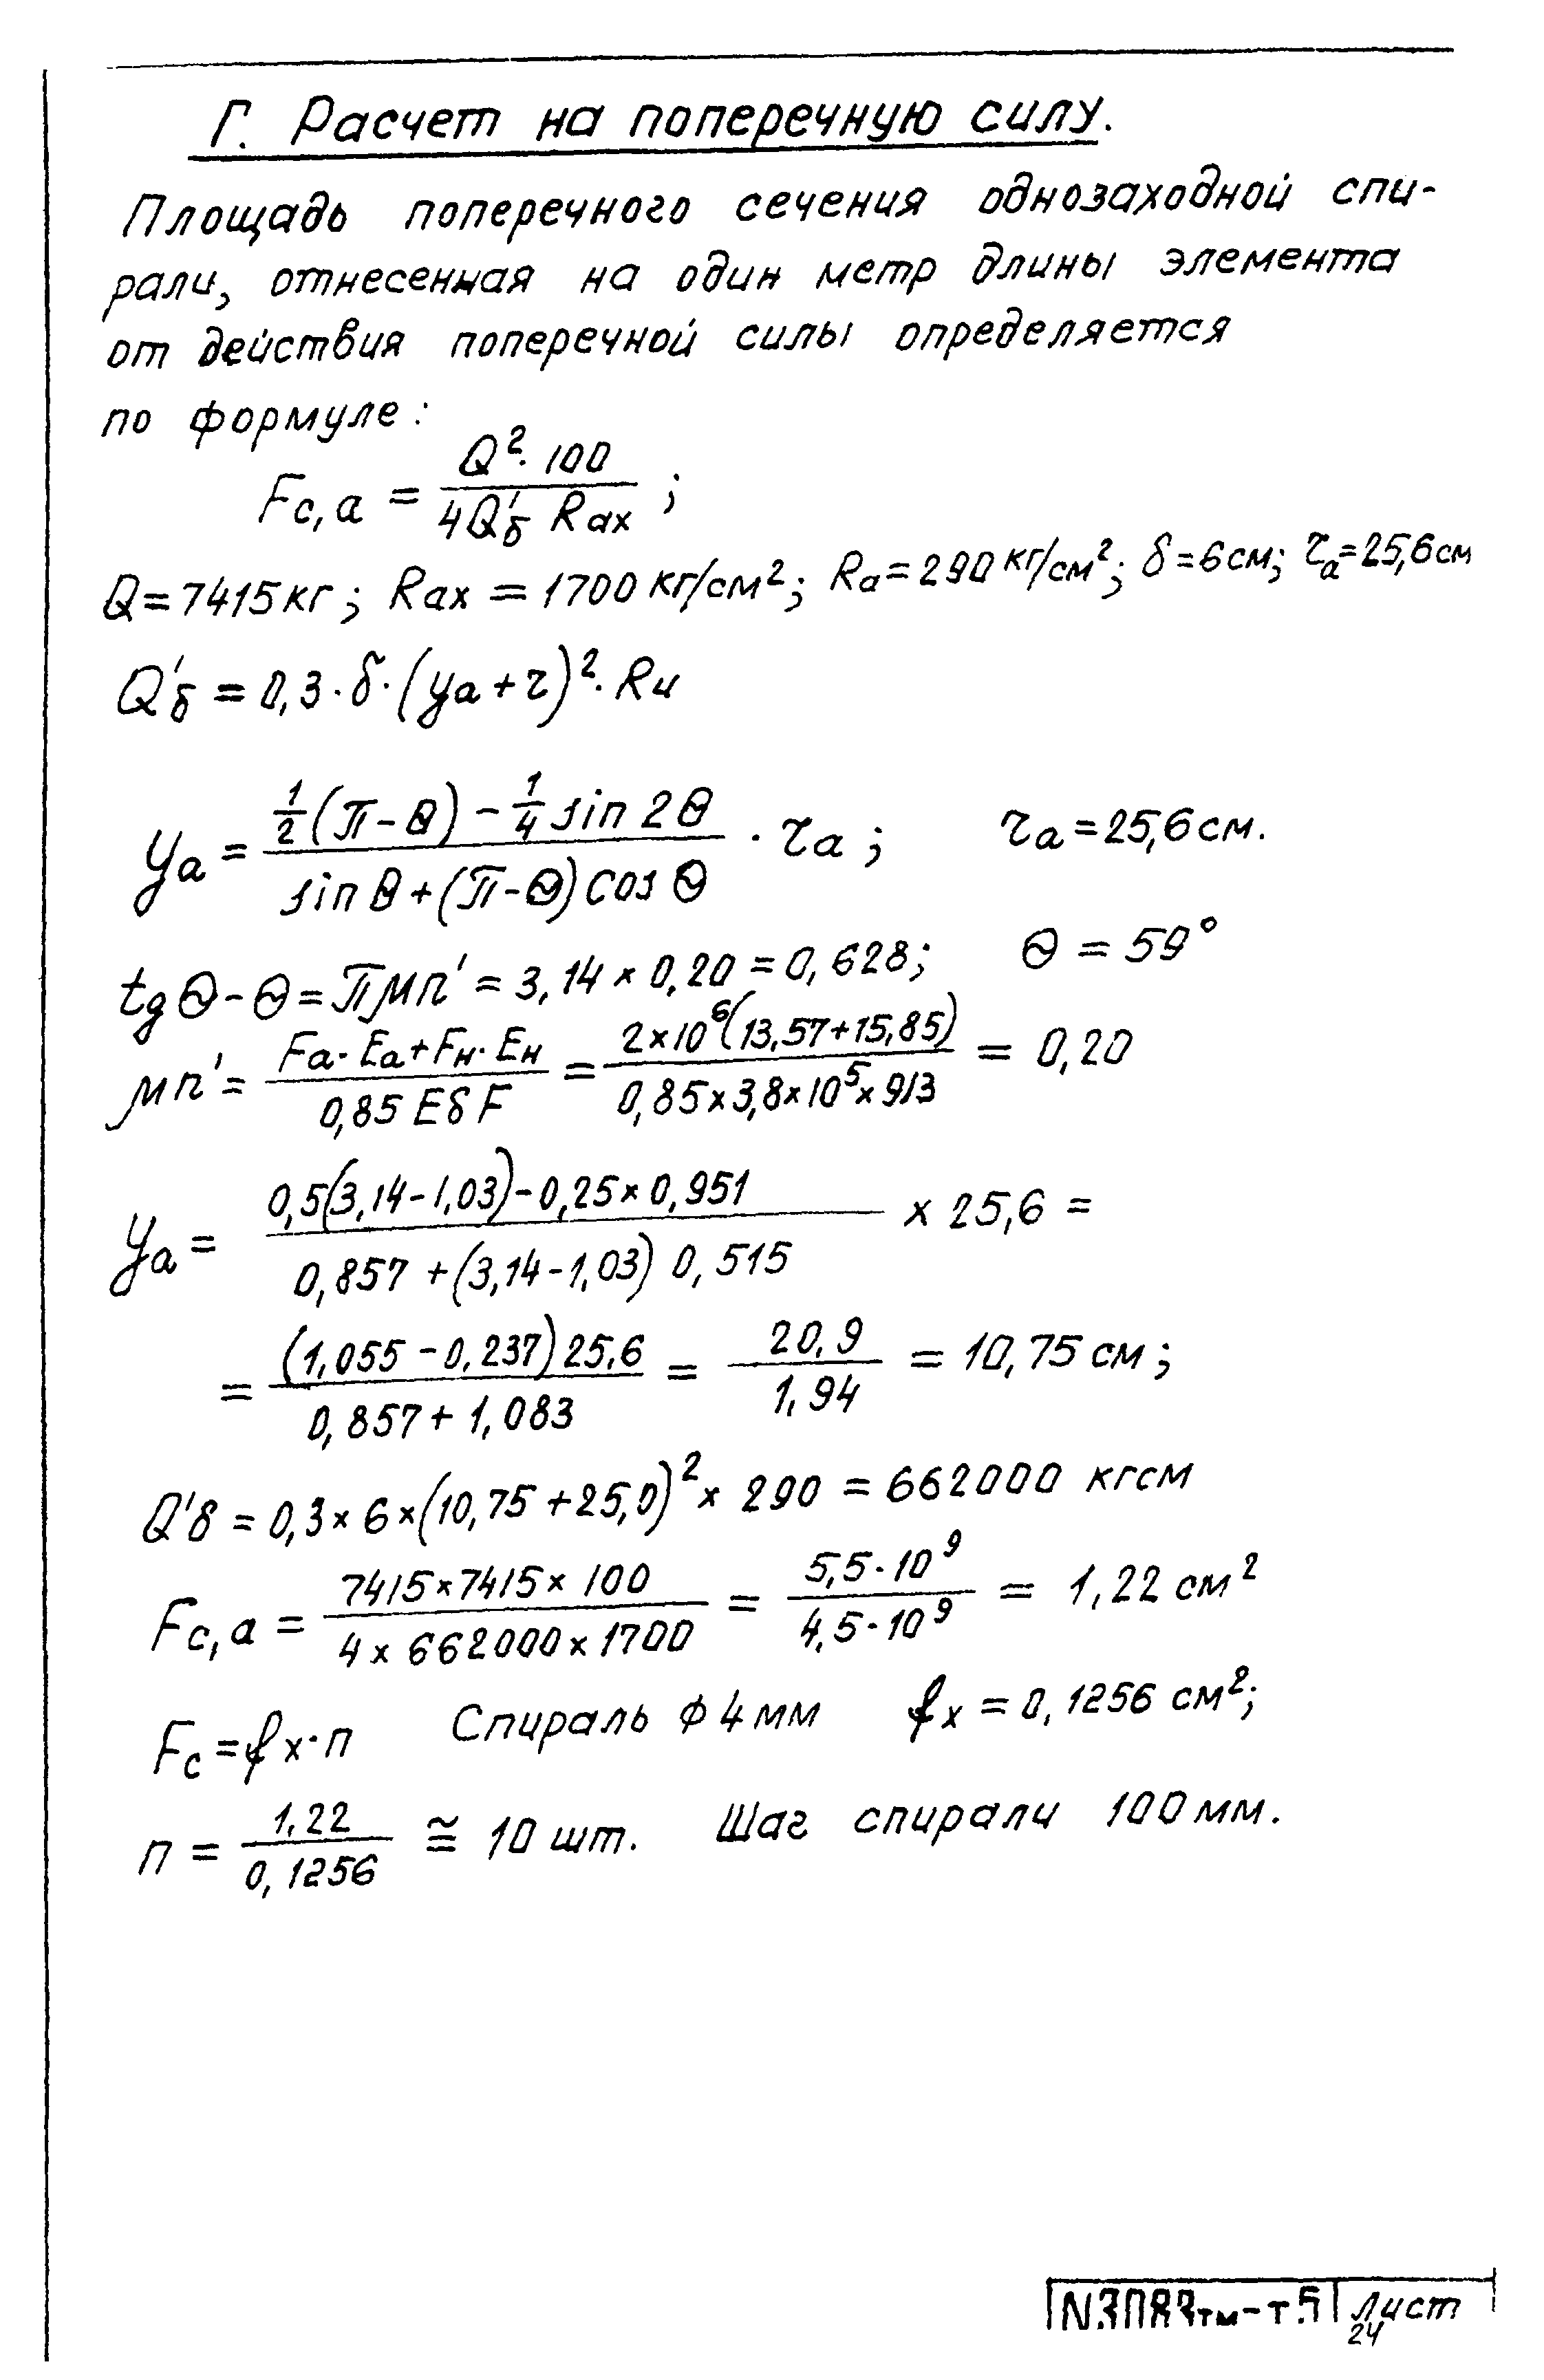 Г. Расчет на поперечную силу.
Площадь поперечного сечения однозаходной спи-
рали, отнесенная на один метр длины элемента
от действия поперечной силы определяется
по формуле:
Fс,а = Q²·100 / 4Q'б Rах ;
Q = 7415 кг; Rах = 1700 кг/см²; Rа = 290 кг/см²; δ = 6 см; τа = 25,6 см
Q'б = 0,3·δ·(yа + τ)²·Rи
yа = ½(π-θ) - ¼ sin 2θ / sin θ + (π-θ) cos θ · τа ; τа = 25,6 см.
tg θ - θ = πμn' = 3,14 × 0,20 = 0,628; θ = 59°
μn' = Fа·Eа + Fн·Eн / 0,85 Eб F = 2×10⁶(13,57+15,85) / 0,85×3,8×10⁵×913 = 0,20
yа = 0,5(3,14-1,03)-0,25×0,951 / 0,857+(3,14-1,03) 0,515 × 25,6 =
= (1,055-0,237)25,6 / 0,857+1,083 = 20,9 / 1,94 = 10,75 см;
Q'б = 0,3×6×(10,75+25,0)²× 290 = 662000 кгсм
Fс,а = 7415×7415×100 / 4×662000×1700 = 5,5·10⁹ / 4,5·10⁹ = 1,22 см²
Fс = fх·п Спираль ф 4 мм fх = 0,1256 см²;
п = 1,22 / 0,1256 ≅ 10 шт. Шаг спирали 100 мм.
N.3083тм-т.5 Лист
24